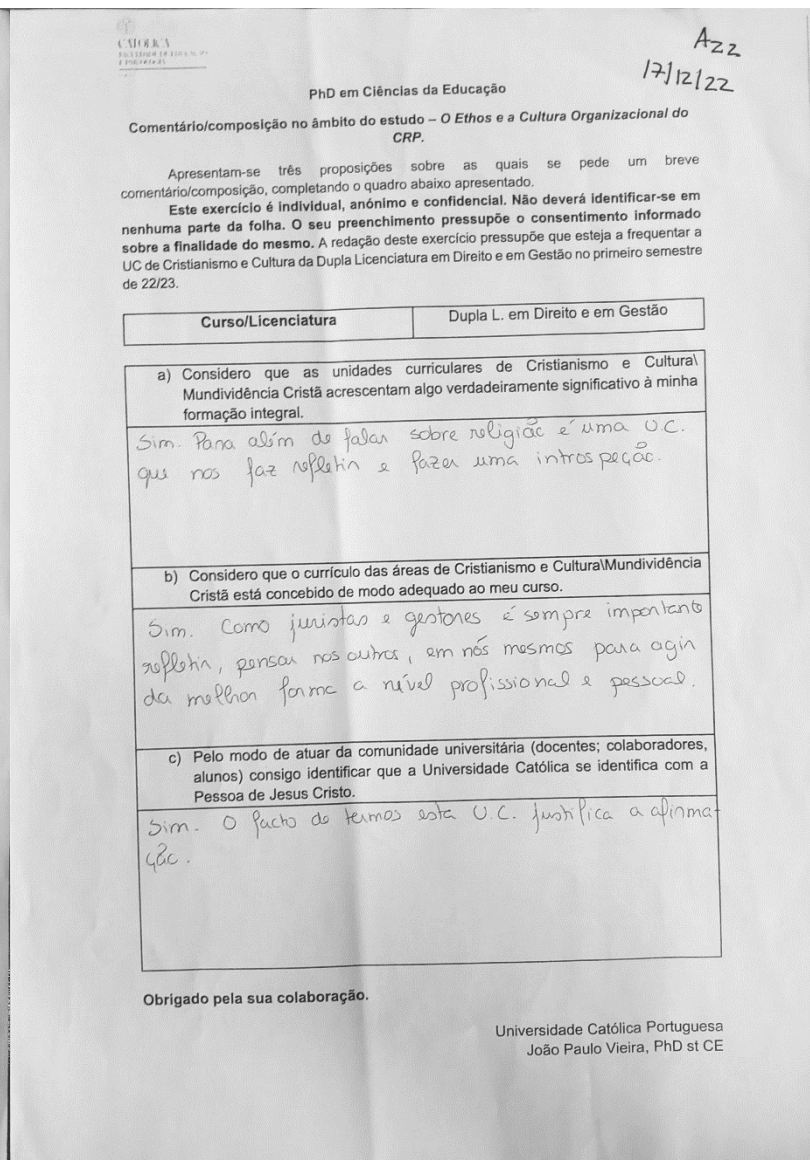 CATÓLICA
FACULDADE DE EDUCAÇÃO
E PSICOLOGIA
A22
17/12/22
PhD em Ciências da Educação
Comentário/composição no âmbito do estudo – O Ethos e a Cultura Organizacional do
CRP.
Apresentam-se três proposições sobre as quais se pede um breve
comentário/composição, completando o quadro abaixo apresentado.
Este exercício é individual, anónimo e confidencial. Não deverá identificar-se em
nenhuma parte da folha. O seu preenchimento pressupõe o consentimento informado
sobre a finalidade do mesmo. A redação deste exercício pressupõe que esteja a frequentar a
UC de Cristianismo e Cultura da Dupla Licenciatura em Direito e em Gestão no primeiro semestre
de 22/23.
Curso/Licenciatura Dupla L. em Direito e em Gestão
a) Considero que as unidades curriculares de Cristianismo e Cultura\
Mundividência Cristã acrescentam algo verdadeiramente significativo à minha
formação integral.
Sim. Para além de falar sobre religião é uma U.C.
que nos faz refletir e fazer uma introspeção.
b) Considero que o currículo das áreas de Cristianismo e Cultura\Mundividência
Cristã está concebido de modo adequado ao meu curso.
Sim. Como juristas e gestores é sempre importante
refletir, pensar nos outros, em nós mesmos para agir
da melhor forma a nível profissional e pessoal.
c) Pelo modo de atuar da comunidade universitária (docentes; colaboradores,
alunos) consigo identificar que a Universidade Católica se identifica com a
Pessoa de Jesus Cristo.
Sim. O facto de termos esta U.C. justifica a afirma-
ção.
Obrigado pela sua colaboração.
Universidade Católica Portuguesa
João Paulo Vieira, PhD st CE